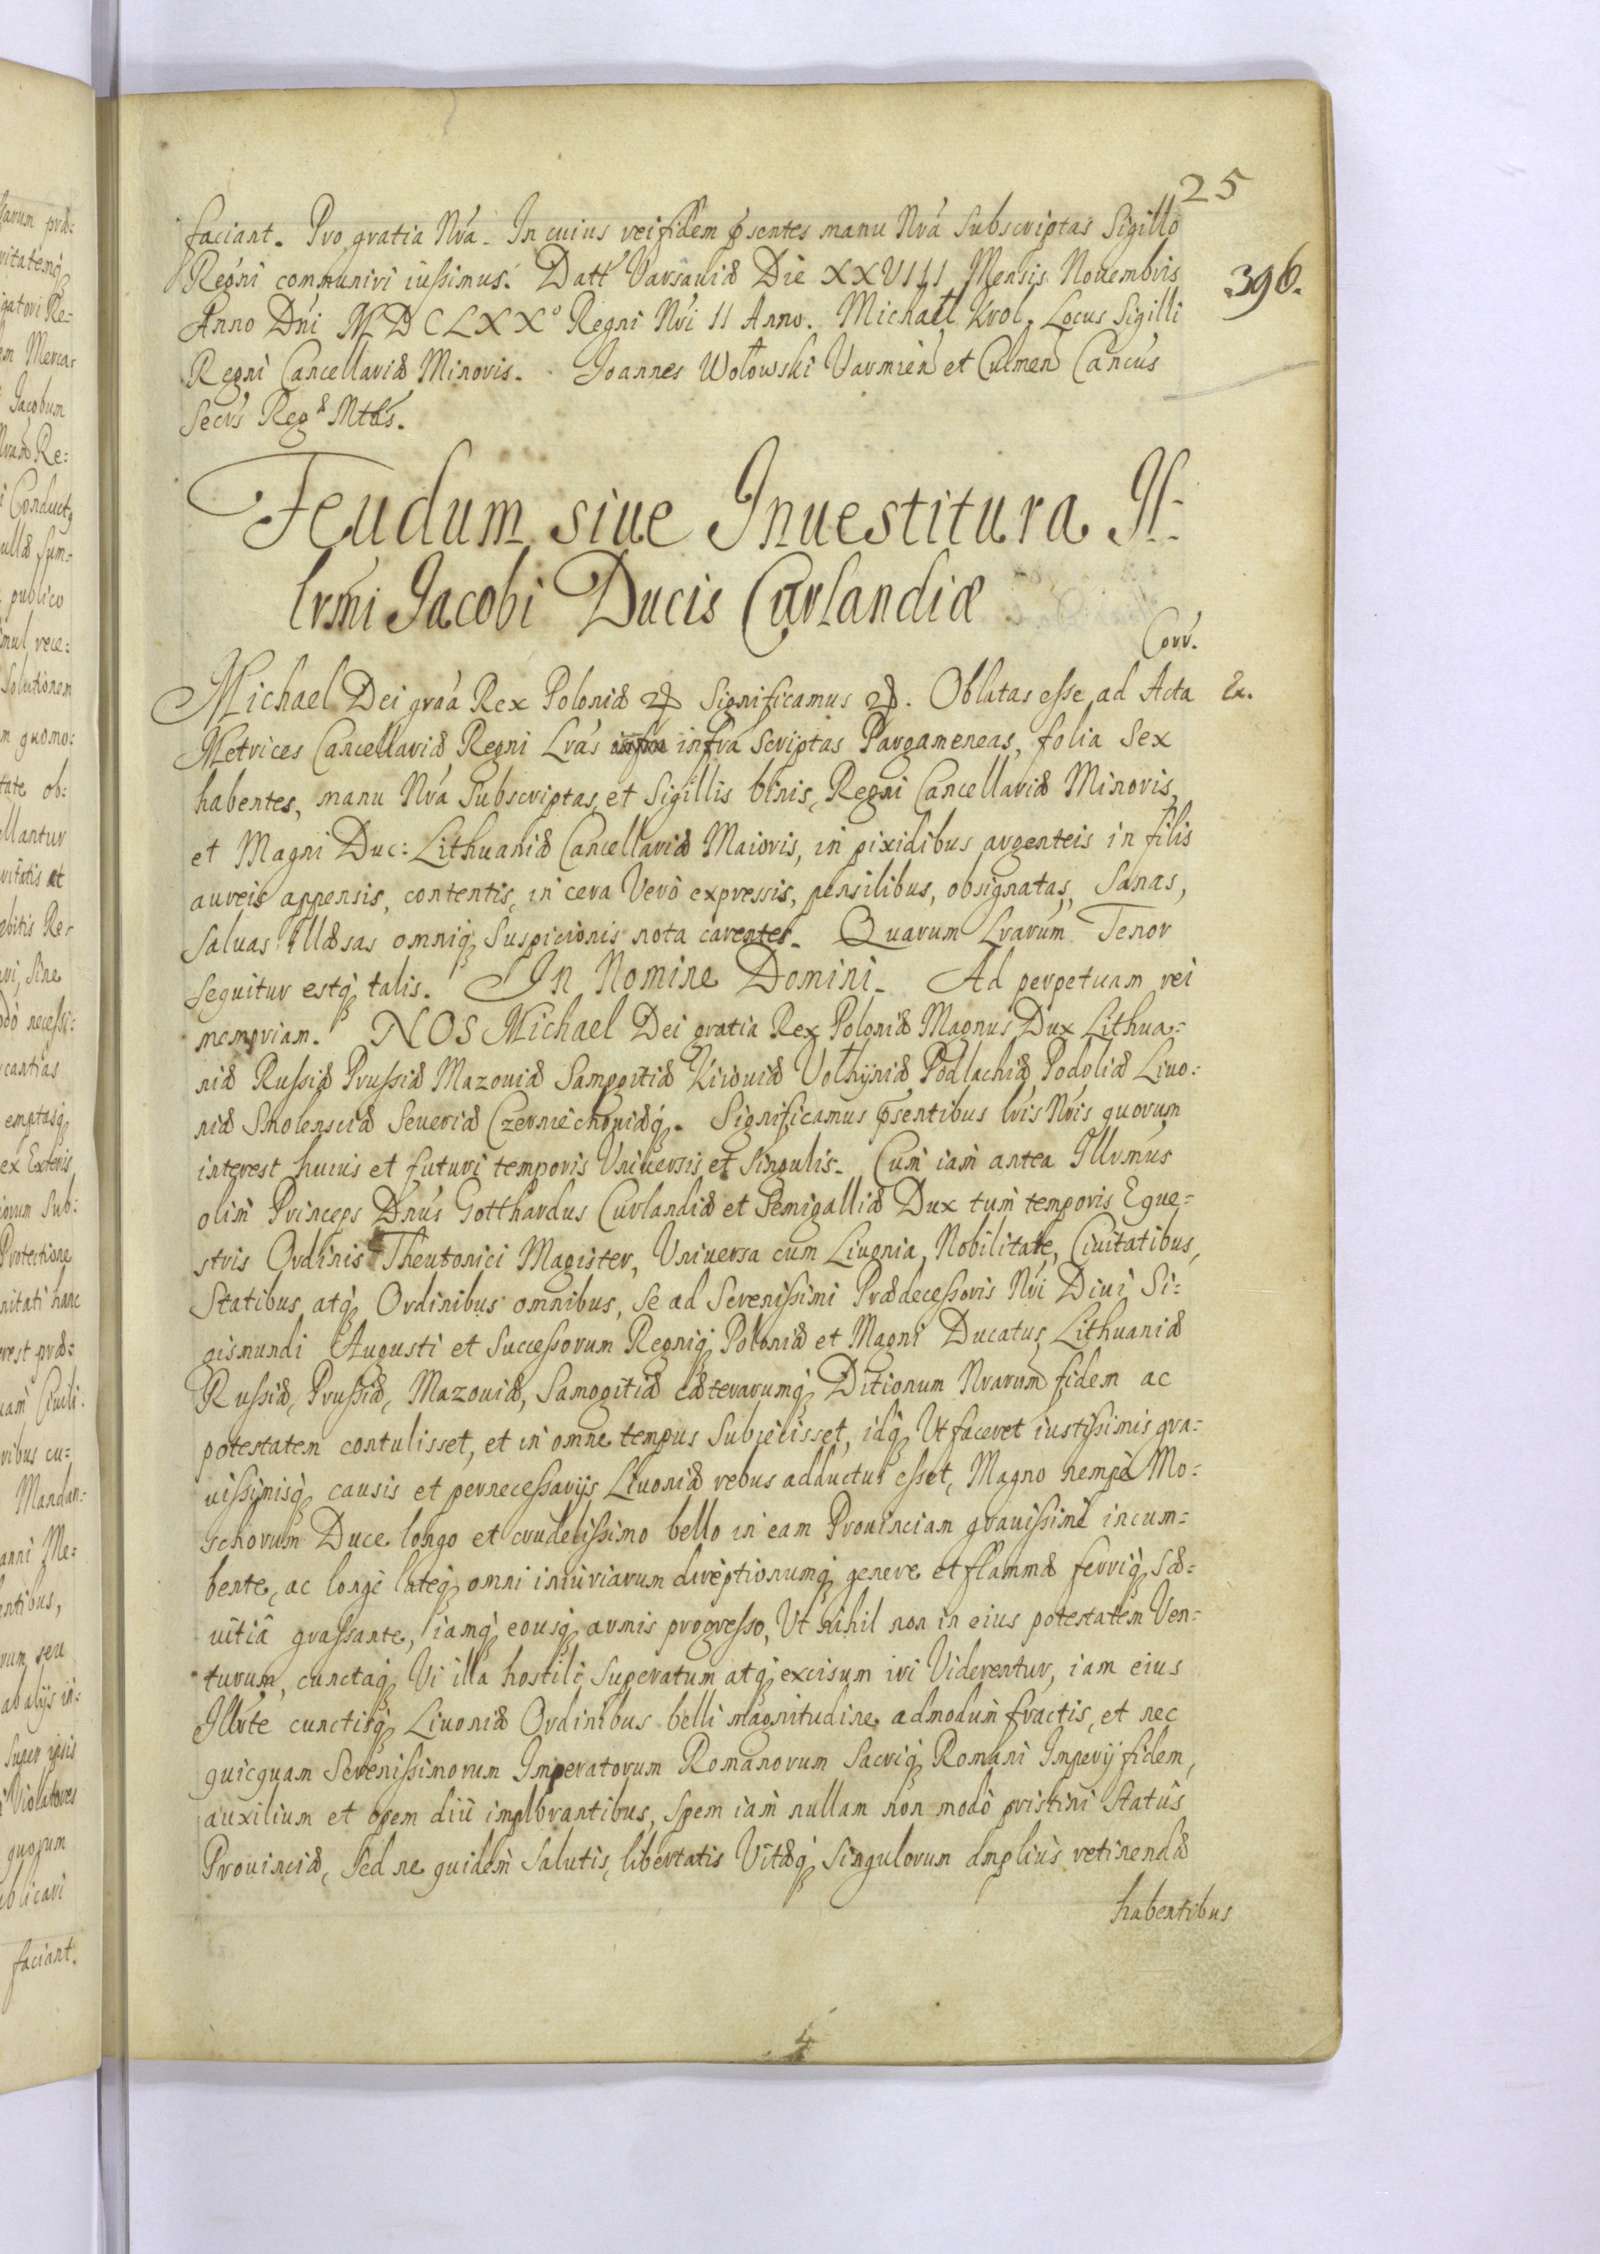 25
faciant. Pro gratia Nrá. In cuius rei fidem psentes manu Nrá Subscriptas Sigillo
Regni communiri iussimus. Datt Varsauiæ Die XXVIII Mensis Nouembris
396.
Anno Dni MDCLXXº Regni Nri II Anno. Michael Krol. Locus Sigilli
Regni Cancellariæ Minoris. Joannes Wołowski Varmien et Culmen Cancus
Secrs Regæ Mttis.
Feudum siue Inuestitura Il-
lrmi Jacobi Ducis Curlandiæ
Corr.
Michael Dei graa Rex Poloniæ &c Significamus &c. Oblatas esse ad Acta Ex.
Metrices Cancellariæ Regni Lras infra scriptas Pargameneas, folia Sex
habentes, manu Nra Subscriptas, et Sigillis binis, Regni Cancellariæ Minoris,
et Magni Duc: Lithuaniæ Cancellariæ Maioris, in pixidibus argenteis in filis
aureis appensis, contentis, in cera Verò expressis, pensilibus, obsignatas, Sanas,
Saluas illæsas omniq Suspicionis nota carentes. Quarum Lrarum Tenor
sequitur estq talis. In Nomine Domini. Ad perpetuam rei
memoriam. NOS Michael Dei gratia Rex Poloniæ Magnus Dux Lithua-
niæ Russiæ Prussiæ Mazouiæ Samogitiæ Kiiouiæ Volhyniæ Podlachiæ Podoliæ Liuo:
niæ Smolensciæ Seueriæ Czerniechouiæq. Significamus psentibus lris Nris quorum
interest huius et futuri temporis Vniuersis et Singulis. Cum iam antea Illrmus
olim Princeps Dnus Gotthardus Curlandiæ et Semigalliæ Dux tum temporis Eque-
stris Ordinis Theutonici Magister, Vniuersa cum Liuonia, Nobilitate, Ciuitatibus,
Statibus atq Ordinibus omnibus, Se ad Serenissimi Prædecessoris Nri Diui Si-
gismundi Augusti et Successorum Regniq Poloniæ et Magni Ducatus Lithuaniæ
Russiæ, Prussiæ, Mazouiæ, Samogitiæ cæterarumq Ditionum Nrarum fidem ac
potestatem contulisset, et in omne tempus Subiecisset, idq Vt faceret iustissimis gra-
uissimisq causis et pernecessarijs Liuoniæ rebus adductus esset, Magno nempè Mo-
schorum Duce longo et crudelissimo bello in eam Prouinciam grauissimè incum-
bente, ac longè lateq omni iniuriarum direptionumq genere et flammæ ferriq Sæ-
uitiâ grassante, iamq eousq armis progresso, Vt nihil non in eius potestatem Ven-
turum, cunctaq Vi illa hostili Superatum atq excisum iri Viderentur, iam eius
Illrte cunctisq Liuoniæ Ordinibus belli magnitudine admodum fractis, et nec
quicquam Serenissimorum Imperatorum Romanorum Sacriq Romani Imperij fidem,
auxilium et opem diù implorantibus, Spem iam nullam non modò pristini Statûs
Prouinciæ, Sed ne quidem Salutis, libertatis Vitæq Singulorum ampliùs retinendæ
habentibus
4